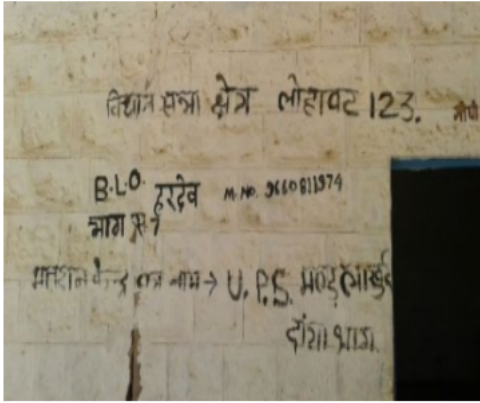 विधान सभा क्षेत्र लोहावट 123.
B.L.O. हरदेव M.NO. 9660811974
भाग सं
मतदान केन्द्र का नाम → U.P.S.
दांया भाग